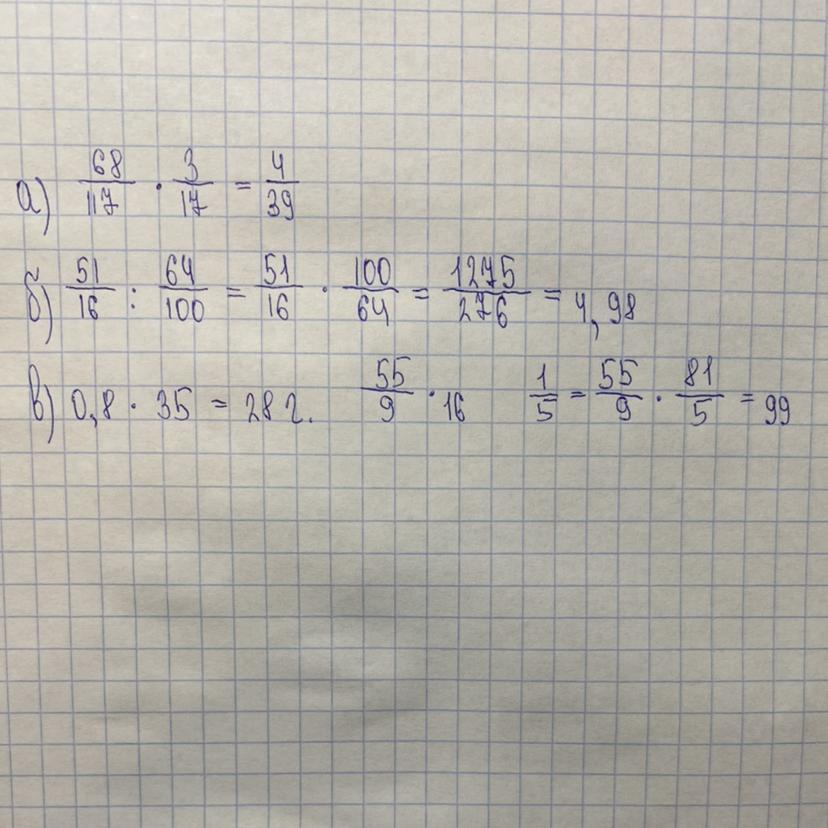 а) 68/117 · 3/17 = 4/39
б) 51/16 : 64/100 = 51/16 · 100/64 = 1275/276 = 4,98
в) 0,8 · 35 = 28 г. 55/9 · 16 1/5 = 55/9 · 81/5 = 99